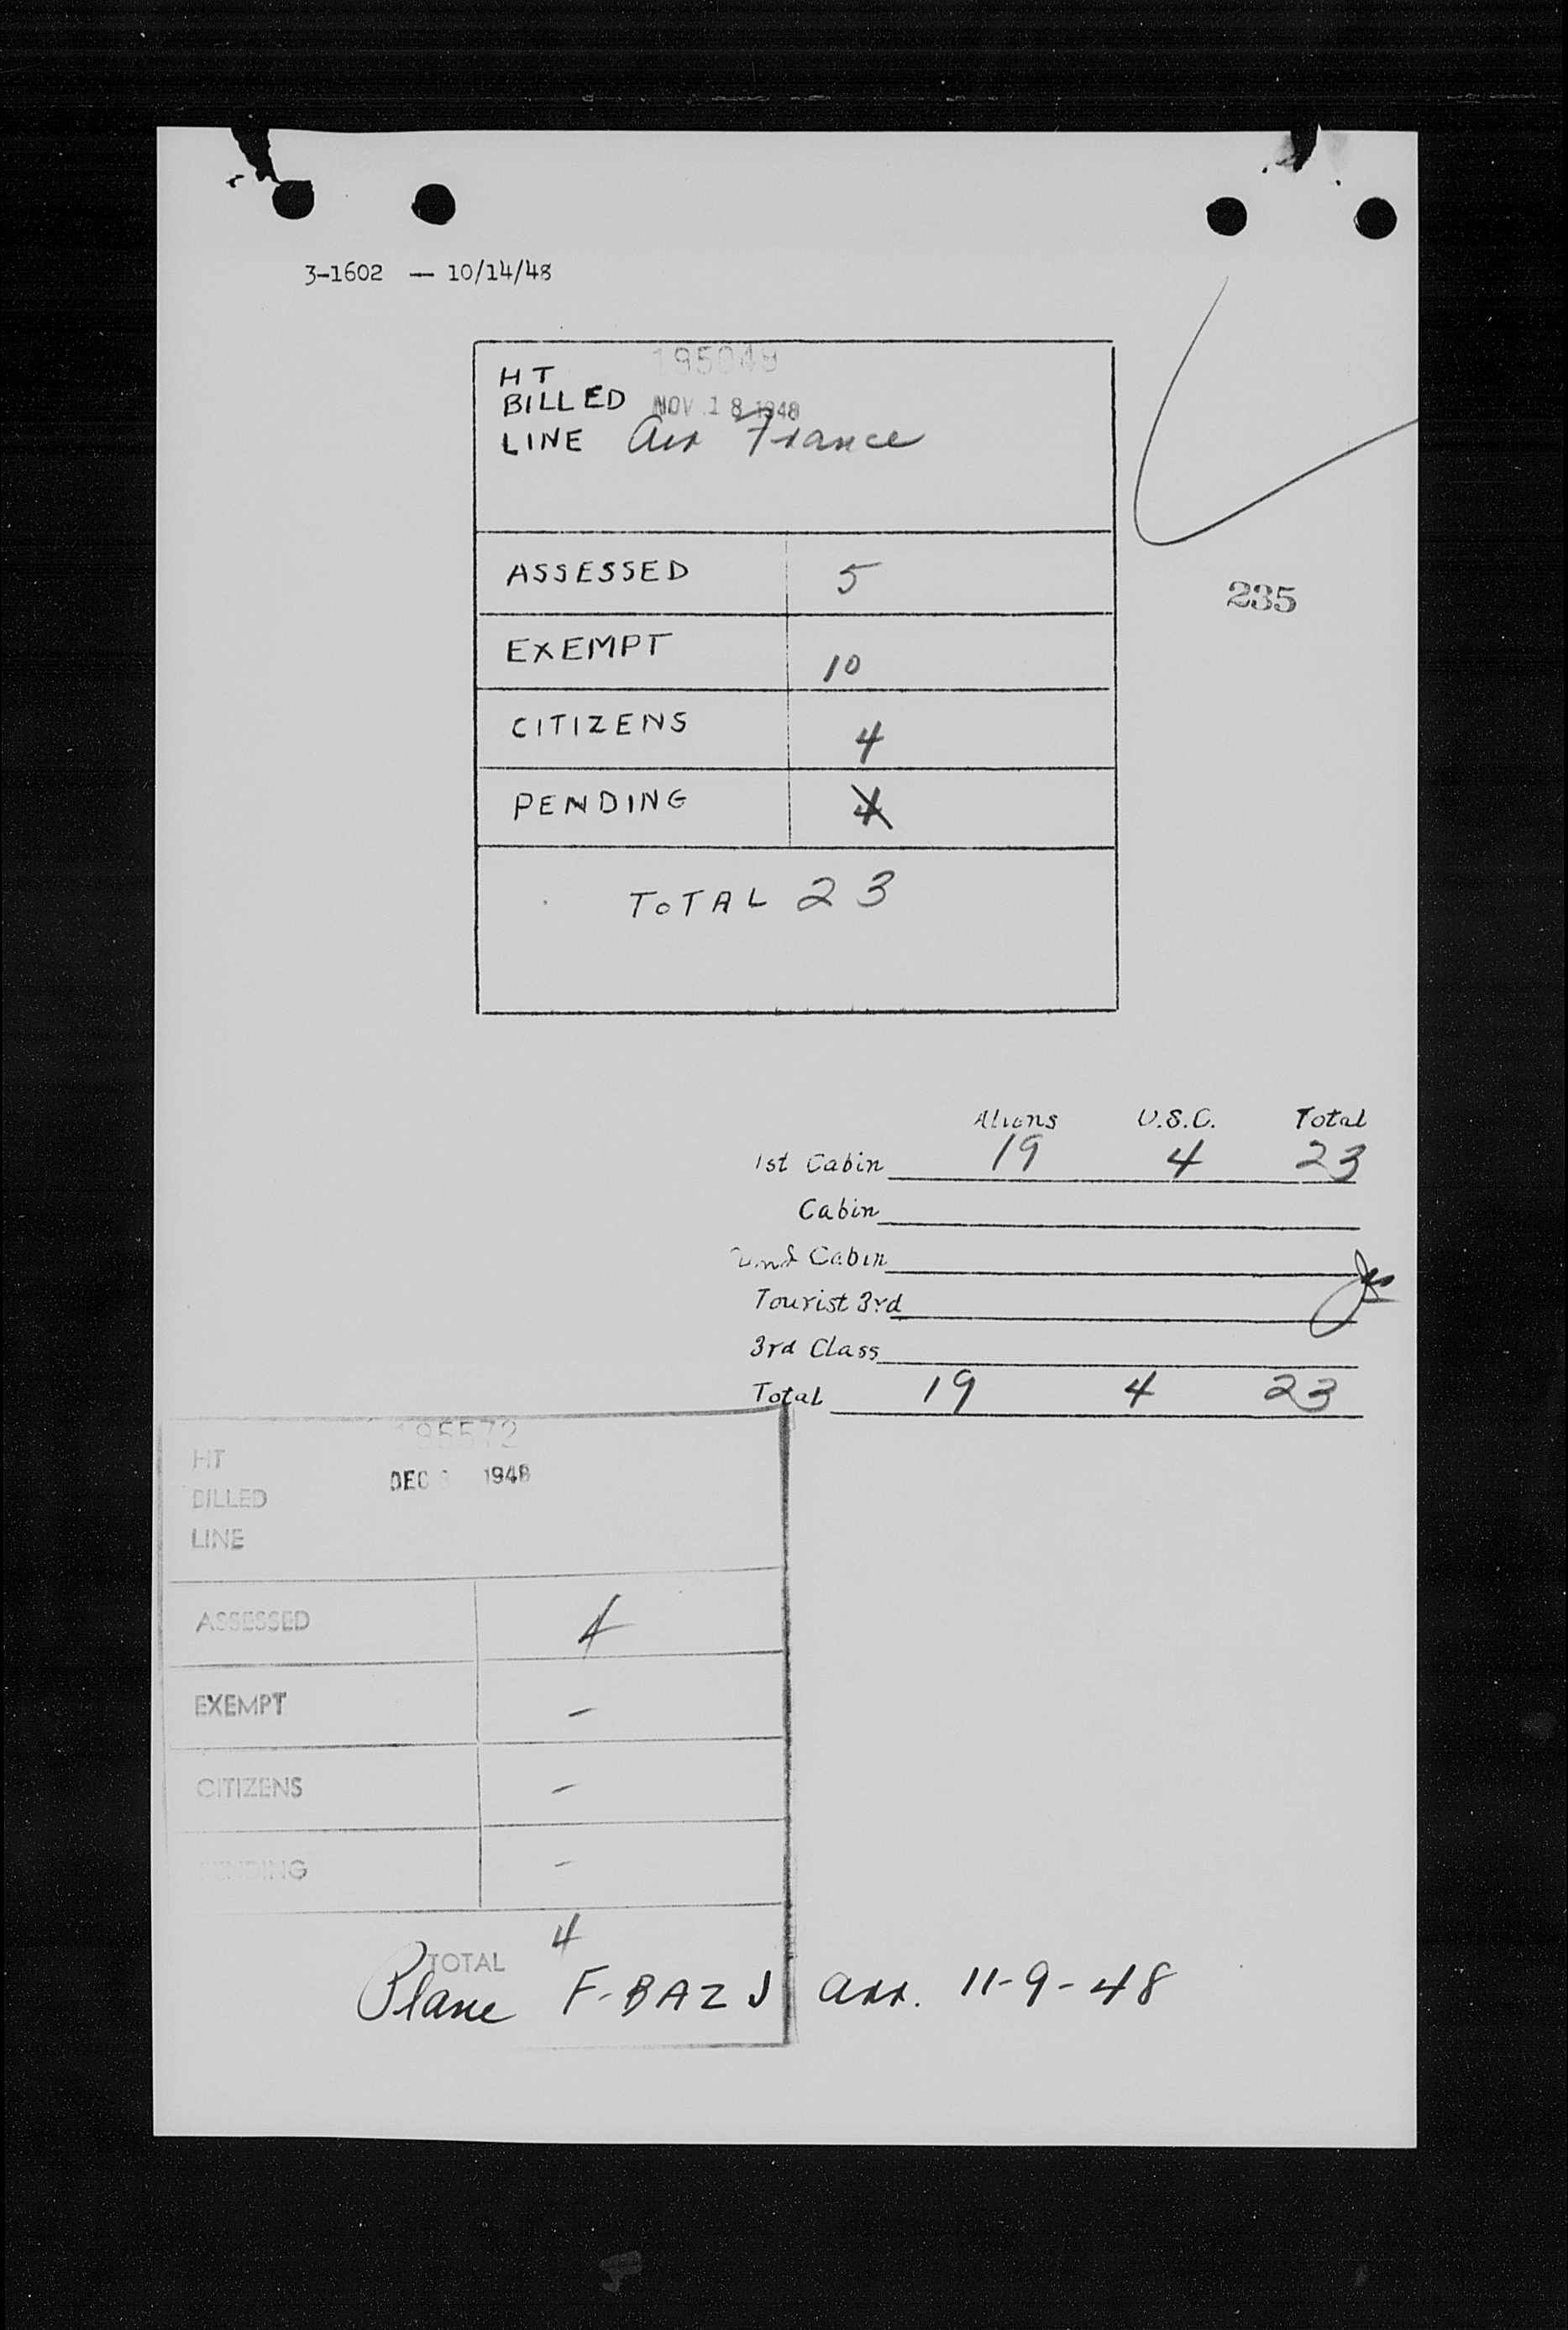 3-1602 — 10/14/48
195049
HT
BILLED NOV 18 1948
LINE Air France
ASSESSED 5
235
EXEMPT 10
CITIZENS 4
PENDING 4
TOTAL 23
Aliens U.S.C. Total
1st Cabin 19 4 23
Cabin
2nd Cabin
Tourist 3rd
3rd Class
Total 19 4 23
195572
HT
DEC 1948
BILLED
LINE
ASSESSED 4
EXEMPT -
CITIZENS -
PENDING -
TOTAL 4
Plane F-BAZJ arr. 11-9-48